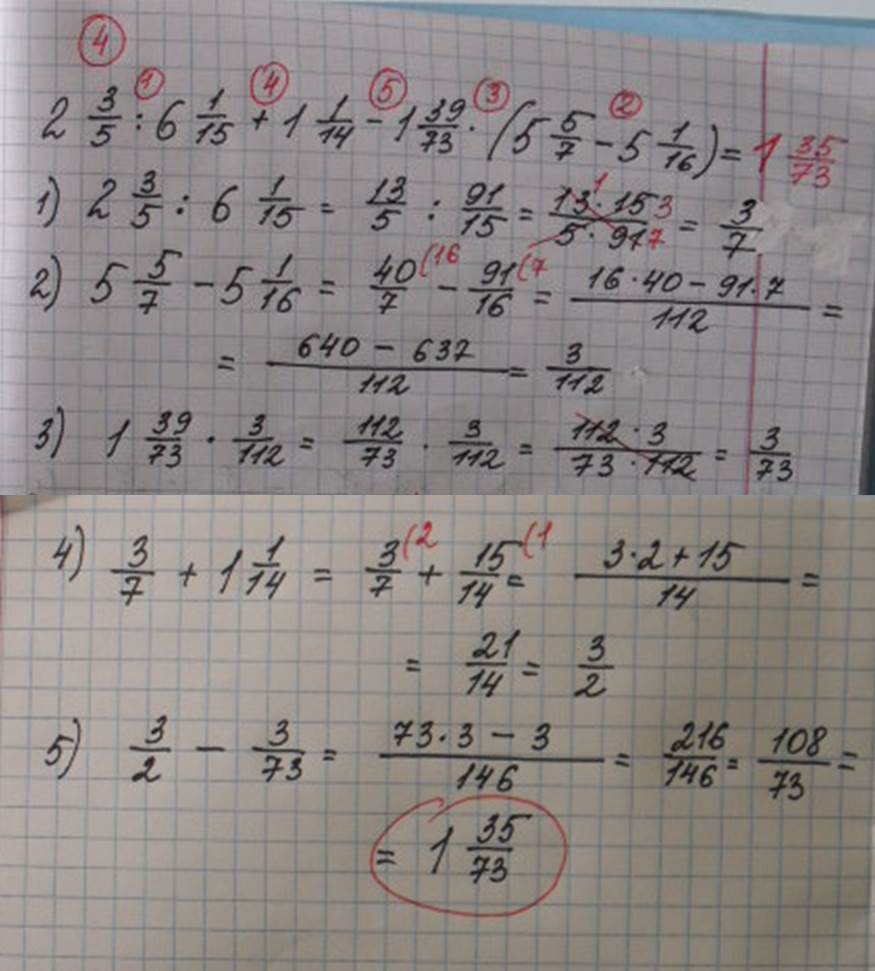 ④
① ④ ⑤ ③ ②
2 3/5 : 6 1/15 + 1 1/14 - 1 39/73 · (5 5/7 - 5 1/16) = 1 35/73
1) 2 3/5 : 6 1/15 = 13/5 : 91/15 = 13 1 · 15 3/5 · 91 7 = 3/7
2) 5 5/7 - 5 1/16 = 40/7 (16 - 91/16 (7 = 16 · 40 - 91 · 7/112 =
= 640 - 637/112 = 3/112
3) 1 39/73 · 3/112 = 112/73 · 3/112 = 112 · 3/73 · 112 = 3/73
4) 3/7 + 1 1/14 = 3/7 (2 + 15/14 (1 = 3·2 + 15/14 =
= 21/14 = 3/2
5) 3/2 - 3/73 = 73·3 - 3/146 = 216/146 = 108/73 =
= 1 35/73